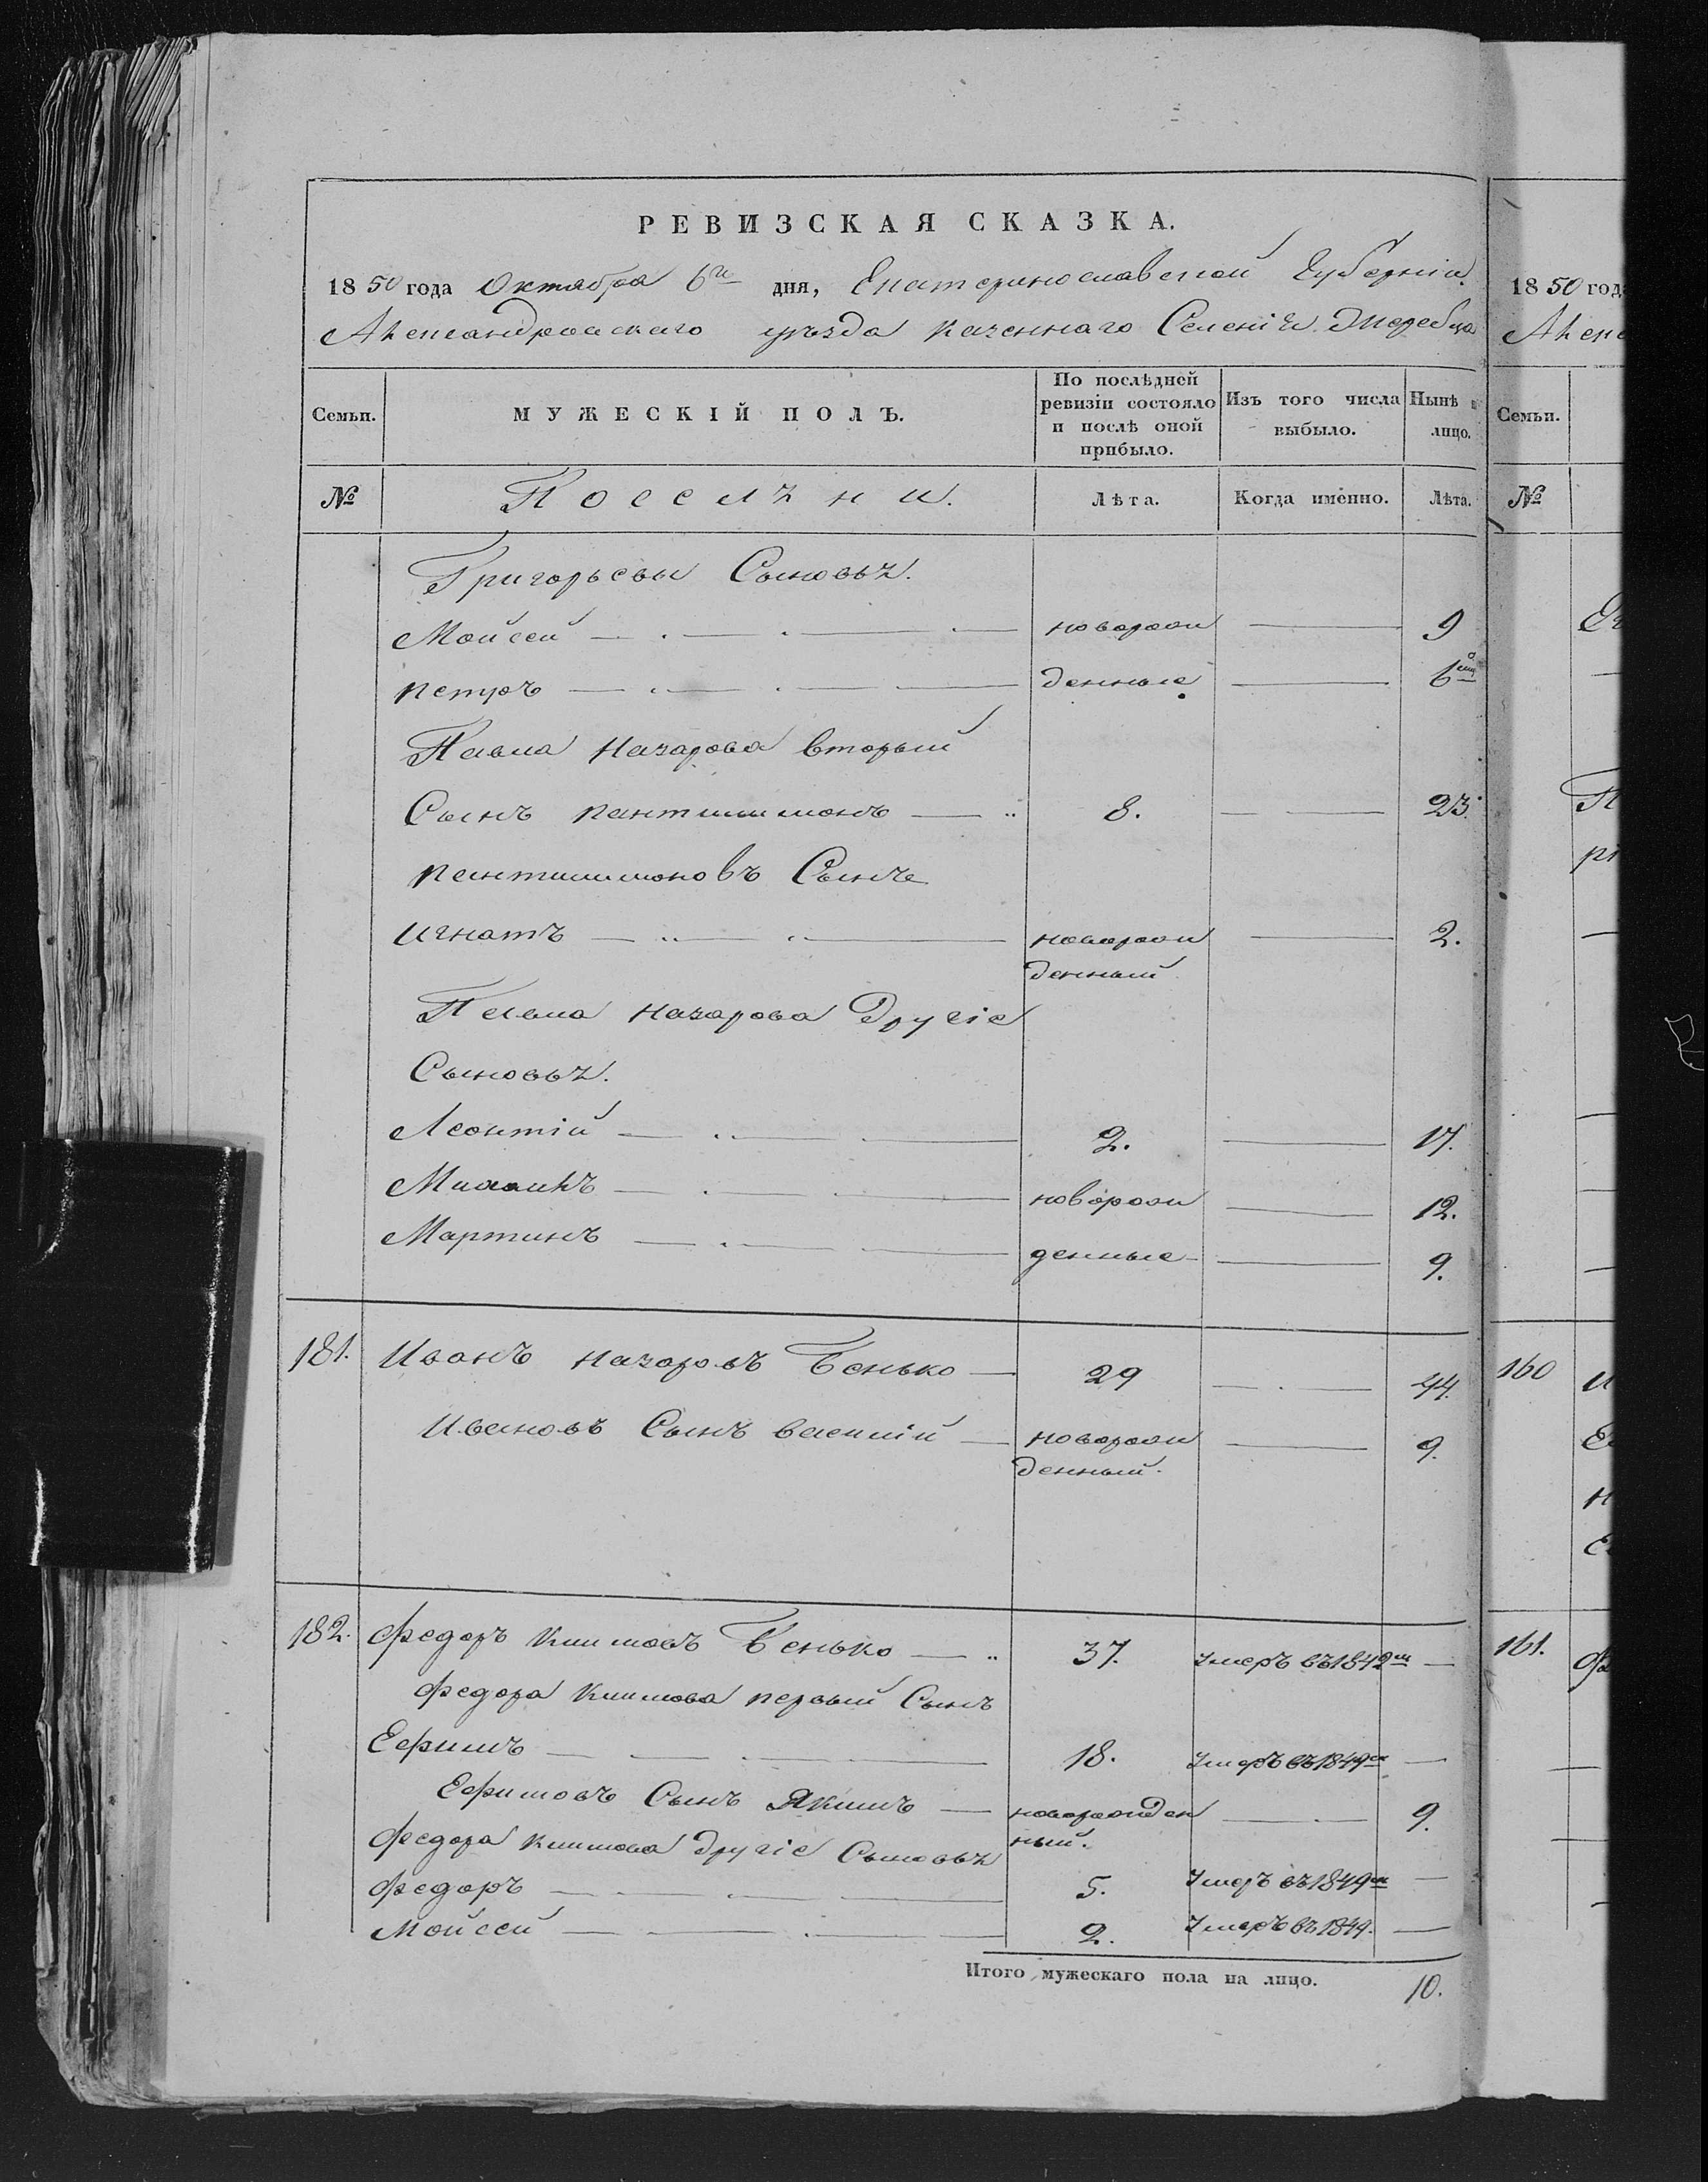 РЕВИЗСКАЯ СКАЗКА.
1850 года Октября 6го дня, Екатеринославской Губерніи
Александровскаго уѣзда казеннаго Селенія Жеребца
Семьи. МУЖЕСКІЙ ПОЛЪ. По послѣдней ревизіи состояло и послѣ оной прибыло. Изъ того числа выбыло. Нынѣ на лицо.
№ Поселѣни. Лѣта. Когда именно. Лѣта.
Григорьевы Сыновьѣ.
Мойсей новорож 9
петръ денные 6
Павла Назарова вторый
Сынъ пантилимонъ 8. 23.
пантилимоновъ Сынъ
игнатъ новорож 2.
денный
Павла Назарова Другіе
Сыновьѣ.
Леонтій 2. 17.
Михаилъ новорож 12.
Мартинъ денные 9.
181. Иванъ Назаровъ Бенько 29 44.
Ивановъ Сынъ василій новорож 9.
денный.
182. Федоръ Климовъ Бенько 37. Умеръ въ 1842м
Федора Климова первый Сынъ
Ефимъ 18. Умеръ въ 1849м
Ефимовъ Сынъ Якимъ новорожден 9.
ный.
Федора климова Другіе Сыновьѣ
Федоръ 5. Умеръ въ 1849м
Мойсей 2. Умеръ въ 1849.
Итого мужескаго пола на лицо. 10.
1850 год
Семьи.
№
160
161.